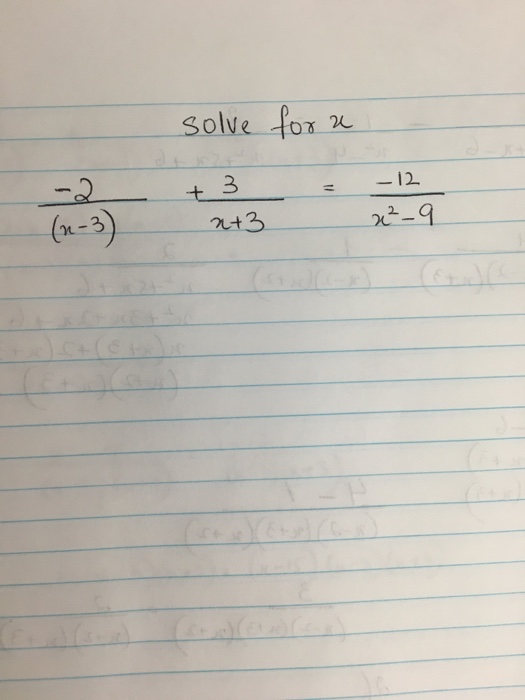 solve for x
-2/(x-3) + 3/x+3 = -12/x²-9